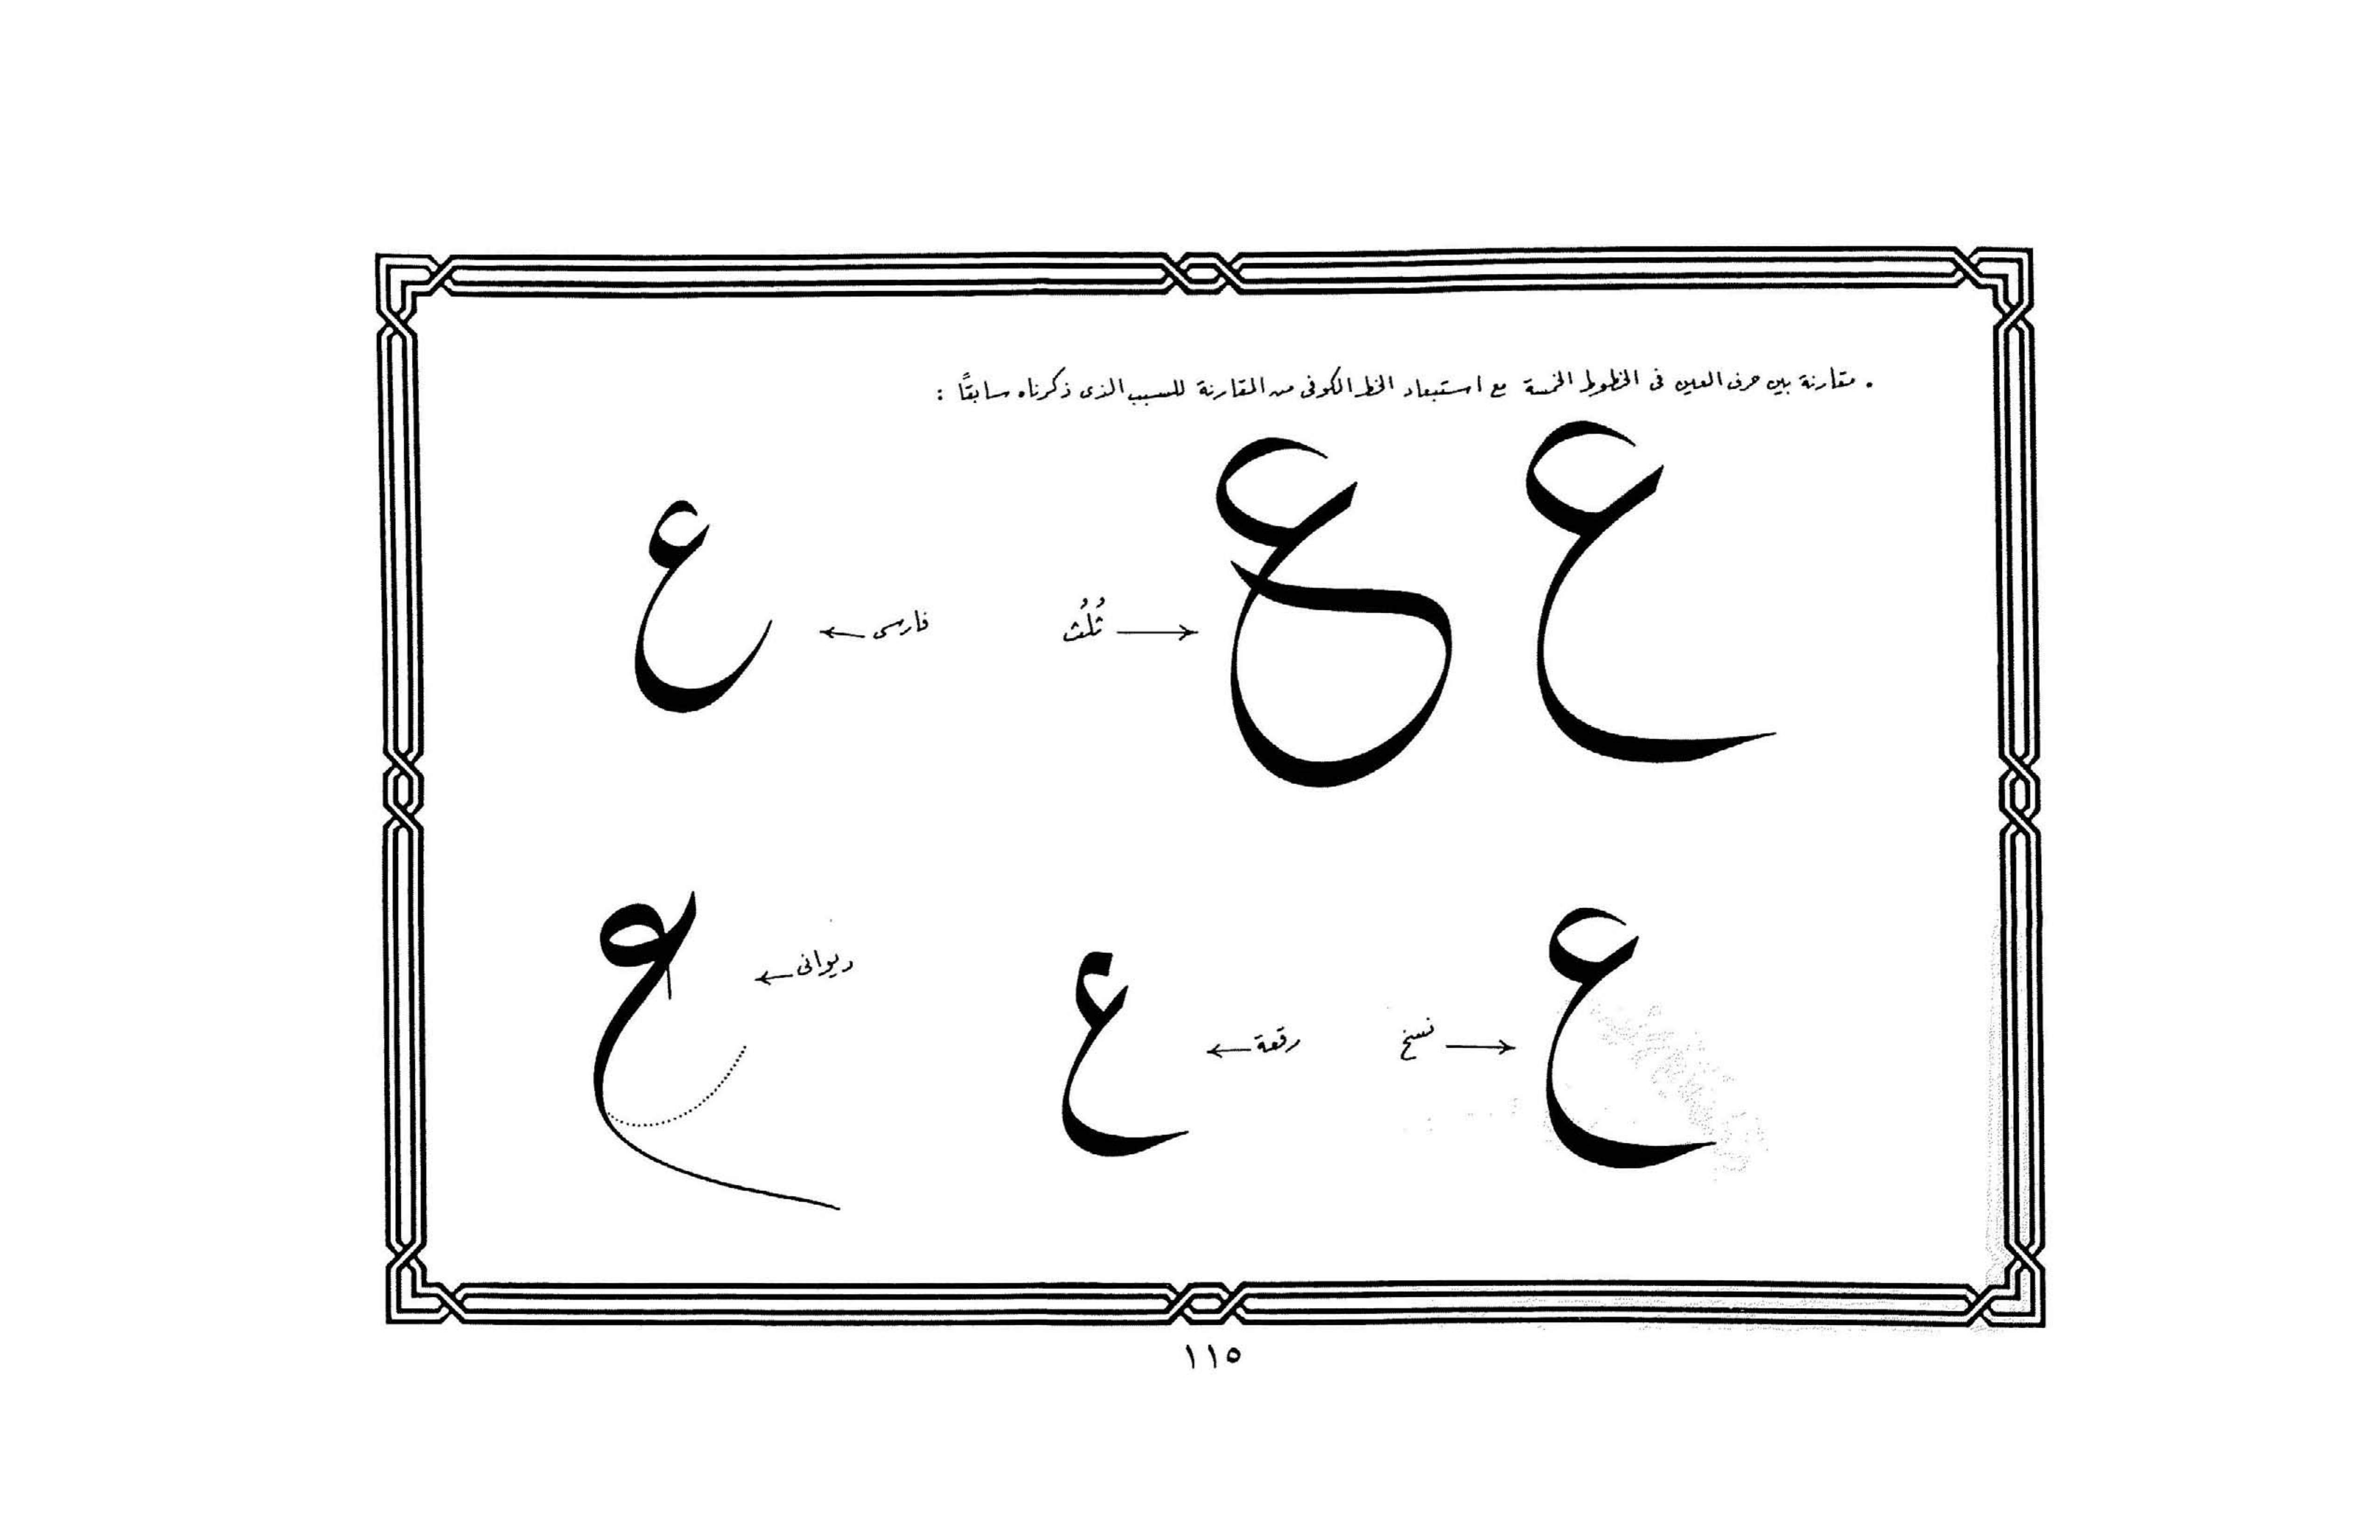 • مقارنة بين حرف العين فى الخطوط الخمسة مع استبعاد الخط الكوفى من المقارنة للسبب الذى ذكرناه سابقاً :
ع ع ثُلُث فارسى ع
ع نسخ رقعة ع ديوانى ع
١١٥